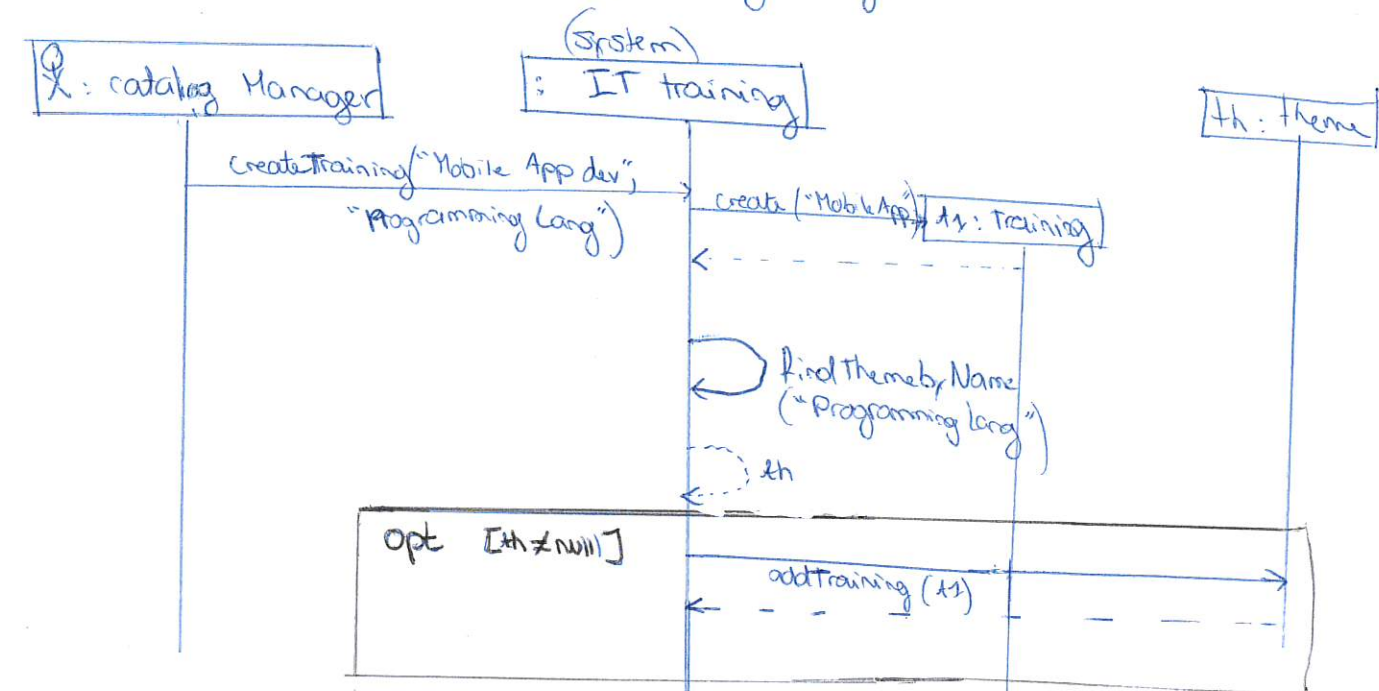 (System)
: catalog Manager
: IT training
th : theme
createTraining("Mobile App dev",
"Programming Lang")
create ("Mobile App")
t1 : Training
findThemebyName
("Programming Lang")
th
opt [th≠null]
addTraining (t1)